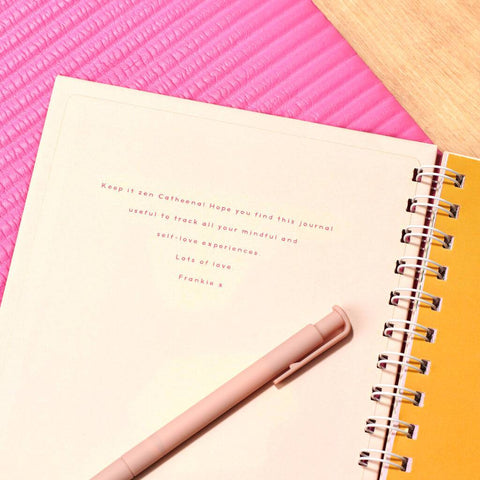 Keep it zen Catheena! Hope you find this journal
useful to track all your mindful and
self-love experiences
Lots of love
Frankie x